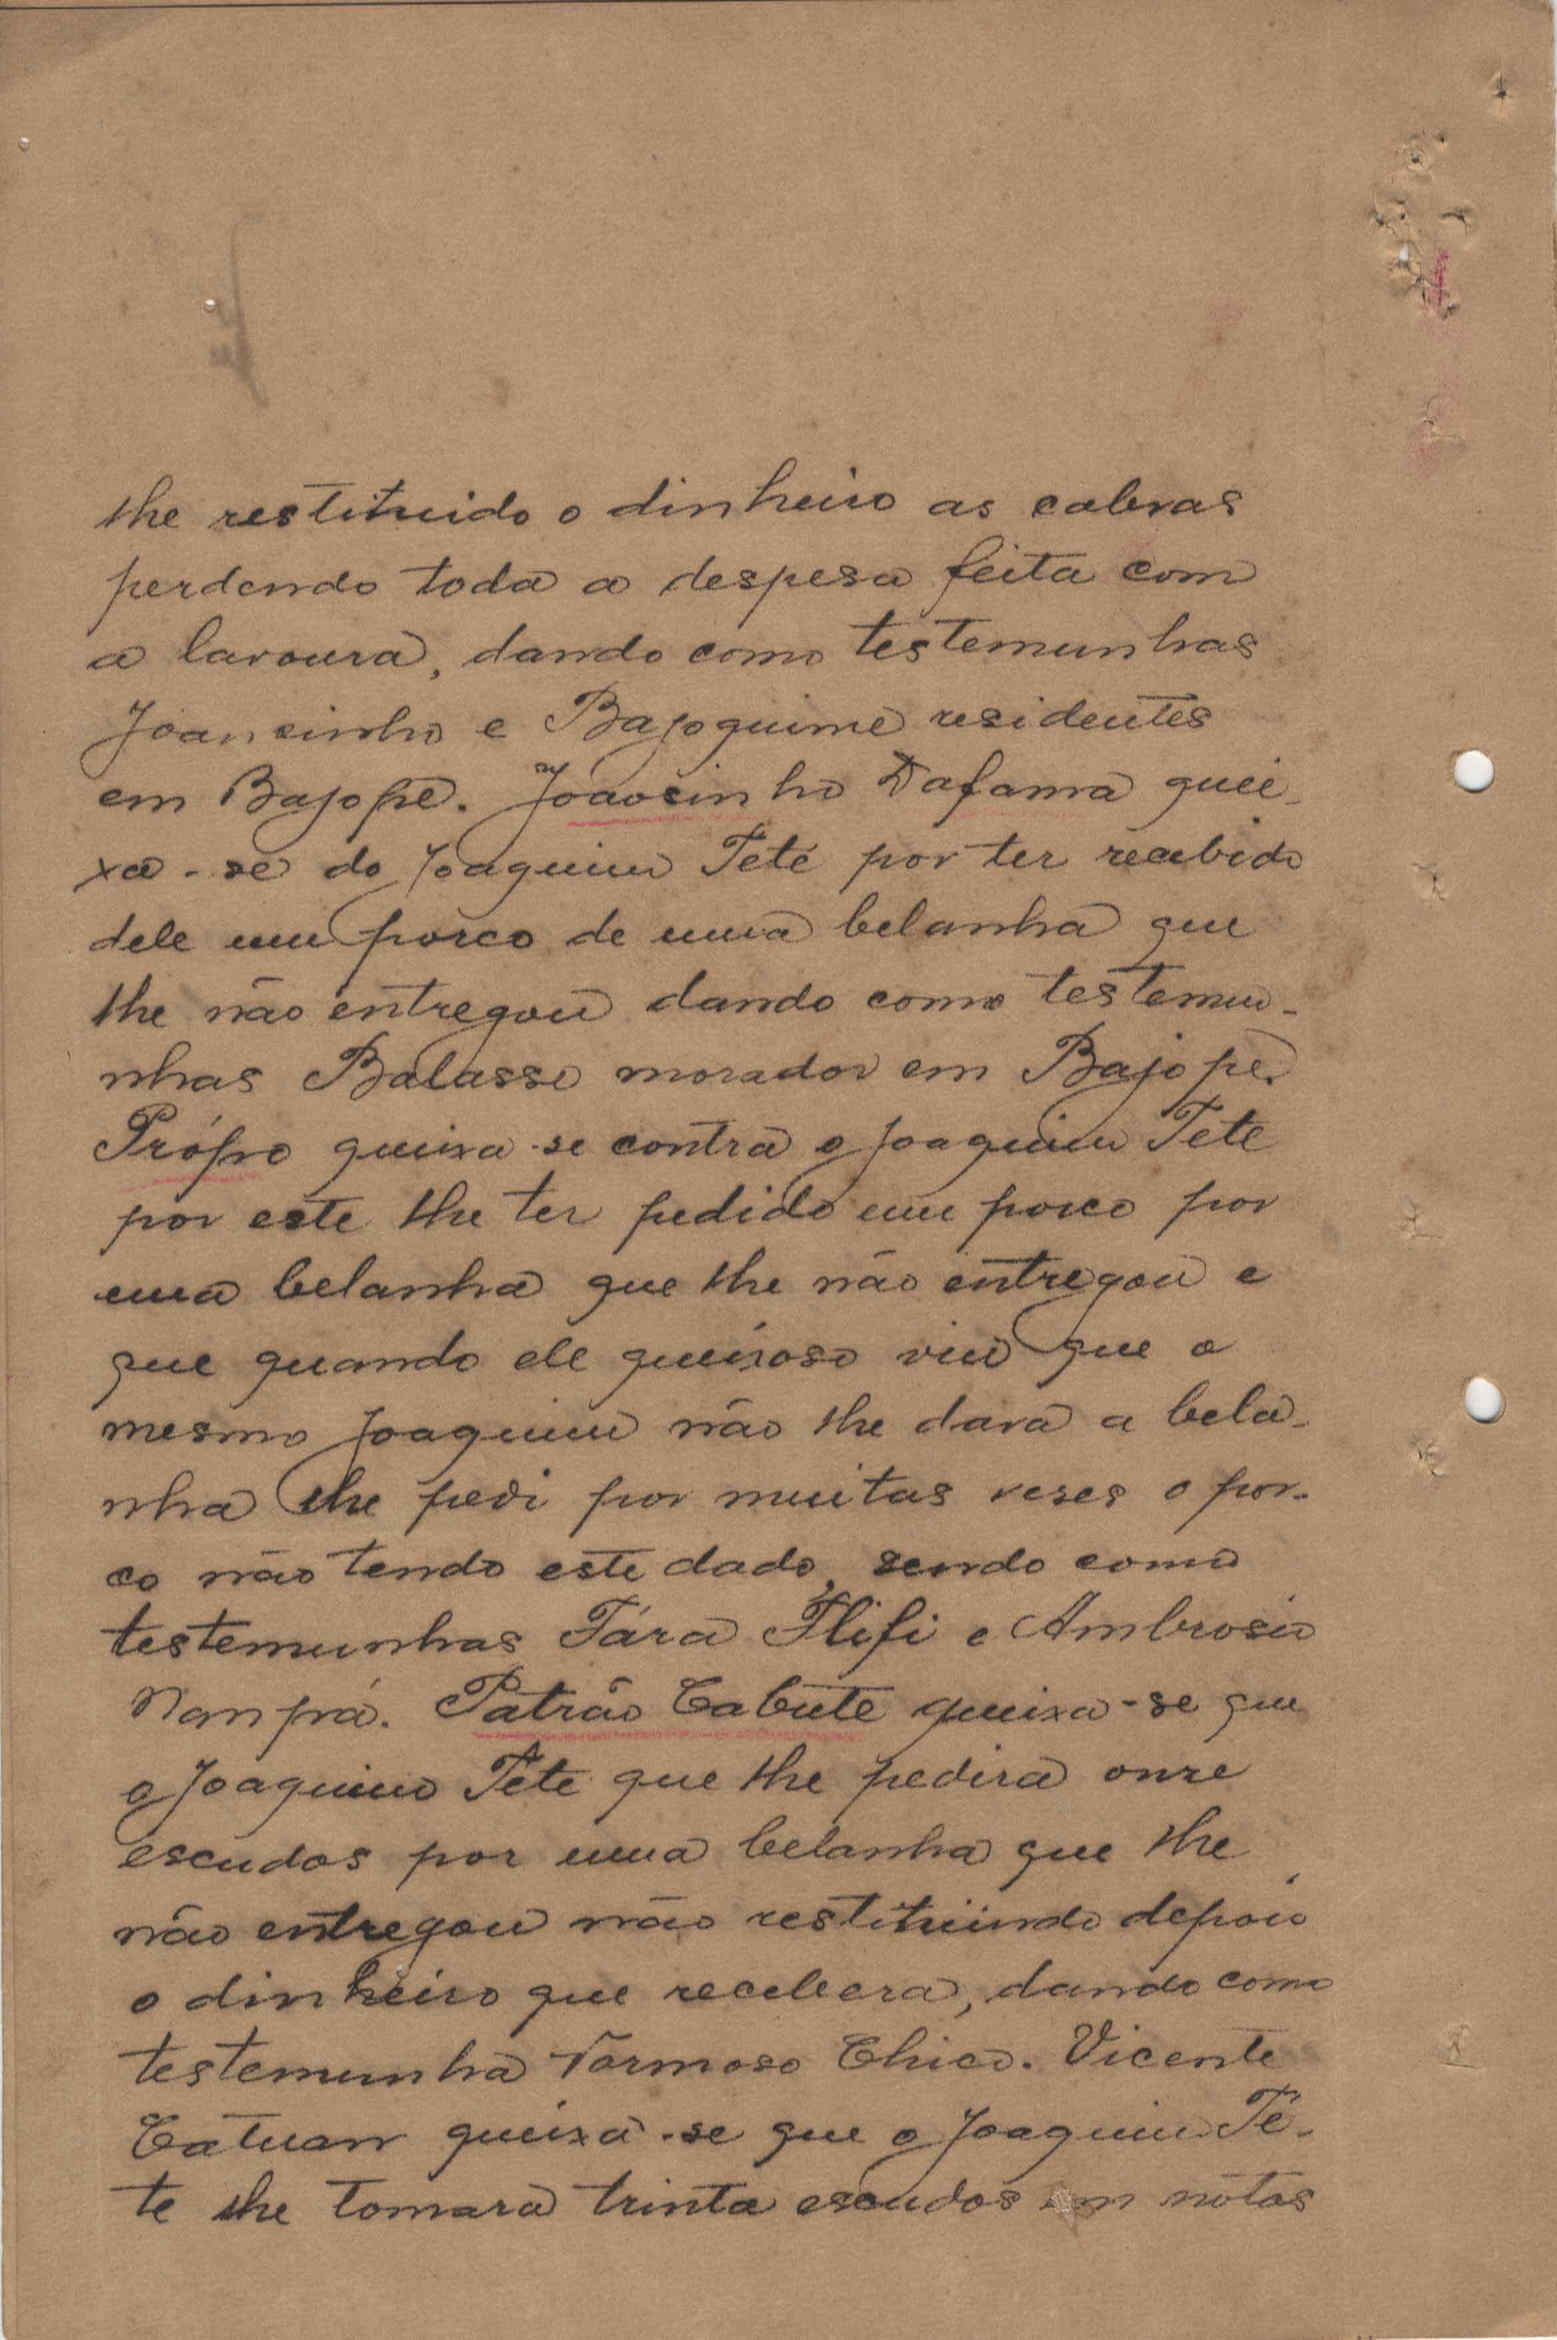 lhe restituido o dinheiro as cabras
perdendo toda a despesa feita com
a lavoura, dando como testemunhas
Joansinho e Bajoquime residentes
em Bajope. Joãosinho Dafama quei-
xa-se do Joaquim Teté por ter recebido
dele um porco de uma belanha que
lhe não entregou dando como testemu-
nhas Balasse morador em Bajope.
Própo queixa-se contra o Joaquim Tete
por este lhe ter pedido um porco por
uma belanha que lhe não entregou e
que quando ele queixoso viu que o
mesmo Joaquim não lhe dava a bela-
nha lhe pedi por muitas veses o por-
co não tendo este dado, sendo como
testemunhas Tára Flifi e Ambrosio
Nanprá. Patrão Cabute queixa-se que
o Joaquim Tete que lhe pedira onze
escudos por uma belanha que lhe
não entregou não restituindo depois
o dinheiro que recebera, dando como
testemunha Formoso Chico. Vicente
Catuan queixa-se que o Joaquim Te-
te lhe tomara trinta escudos em notas